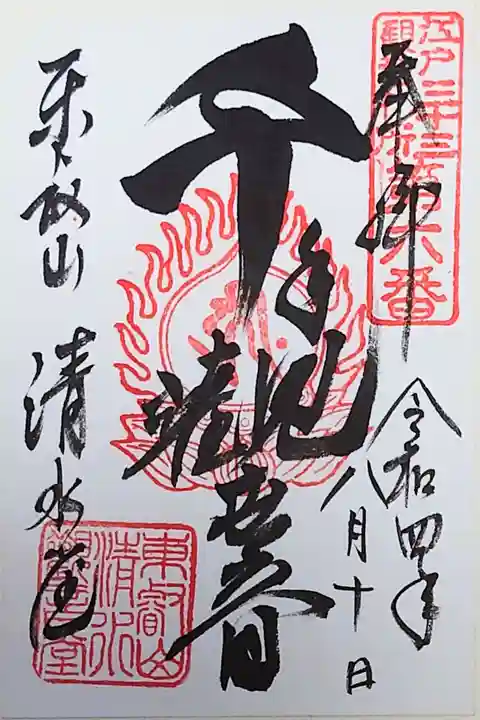 江戸三十三観音札所第六番
奉拝
令和四年
八月十日
千手観音
東叡山 清水堂
東叡山
清水
観音堂